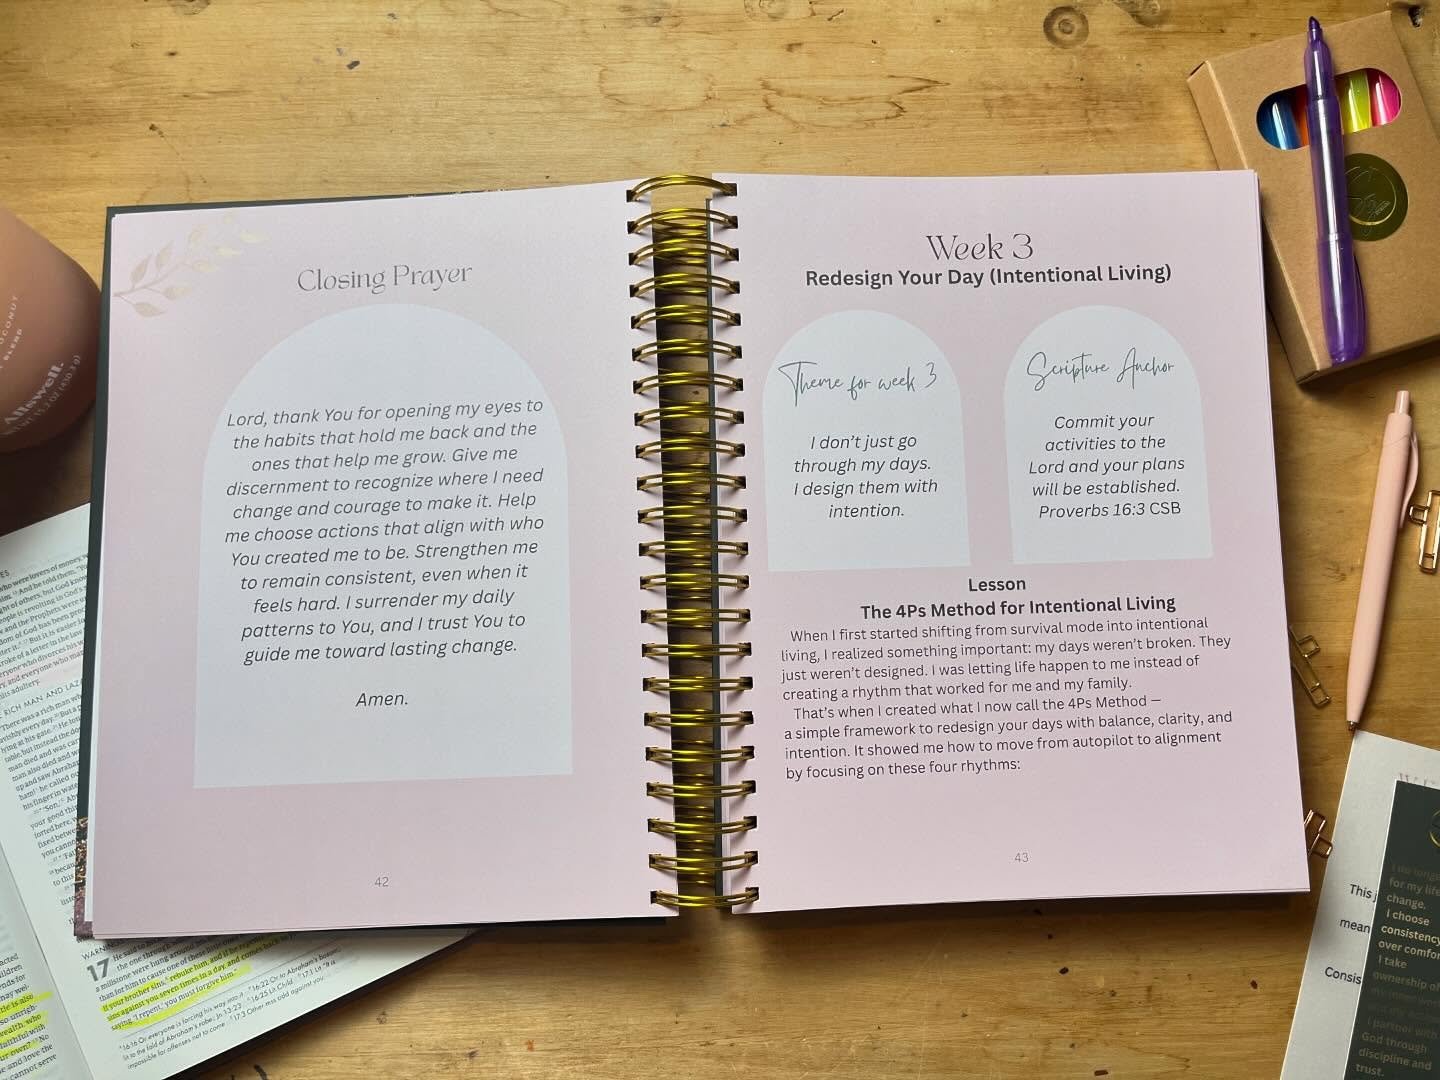 Closing Prayer
Lord, thank You for opening my eyes to
the habits that hold me back and the
ones that help me grow. Give me
discernment to recognize where I need
change and courage to make it. Help
me choose actions that align with who
You created me to be. Strengthen me
to remain consistent, even when it
feels hard. I surrender my daily
patterns to You, and I trust You to
guide me toward lasting change.
Amen.
42
Week 3
Redesign Your Day (Intentional Living)
Theme for week 3
I don't just go
through my days.
I design them with
intention.
Scripture Anchor
Commit your
activities to the
Lord and your plans
will be established.
Proverbs 16:3 CSB
Lesson
The 4Ps Method for Intentional Living
When I first started shifting from survival mode into intentional
living, I realized something important: my days weren't broken. They
just weren't designed. I was letting life happen to me instead of
creating a rhythm that worked for me and my family.
That's when I created what I now call the 4Ps Method —
a simple framework to redesign your days with balance, clarity, and
intention. It showed me how to move from autopilot to alignment
by focusing on these four rhythms:
43
COCONUT
BLEND
Allswell.
RICH MAN AND LAZ
17
if your brother sins, rebuke him, and if he repents
sins against you seven times in a day, and comes back to
saying, 'I repent,' you must forgive him."
This
mean
Consis
I no longer
for my life
change.
I choose
consistency
over comfor
I take
ownership of
I partner with
God through
discipline and
trust.